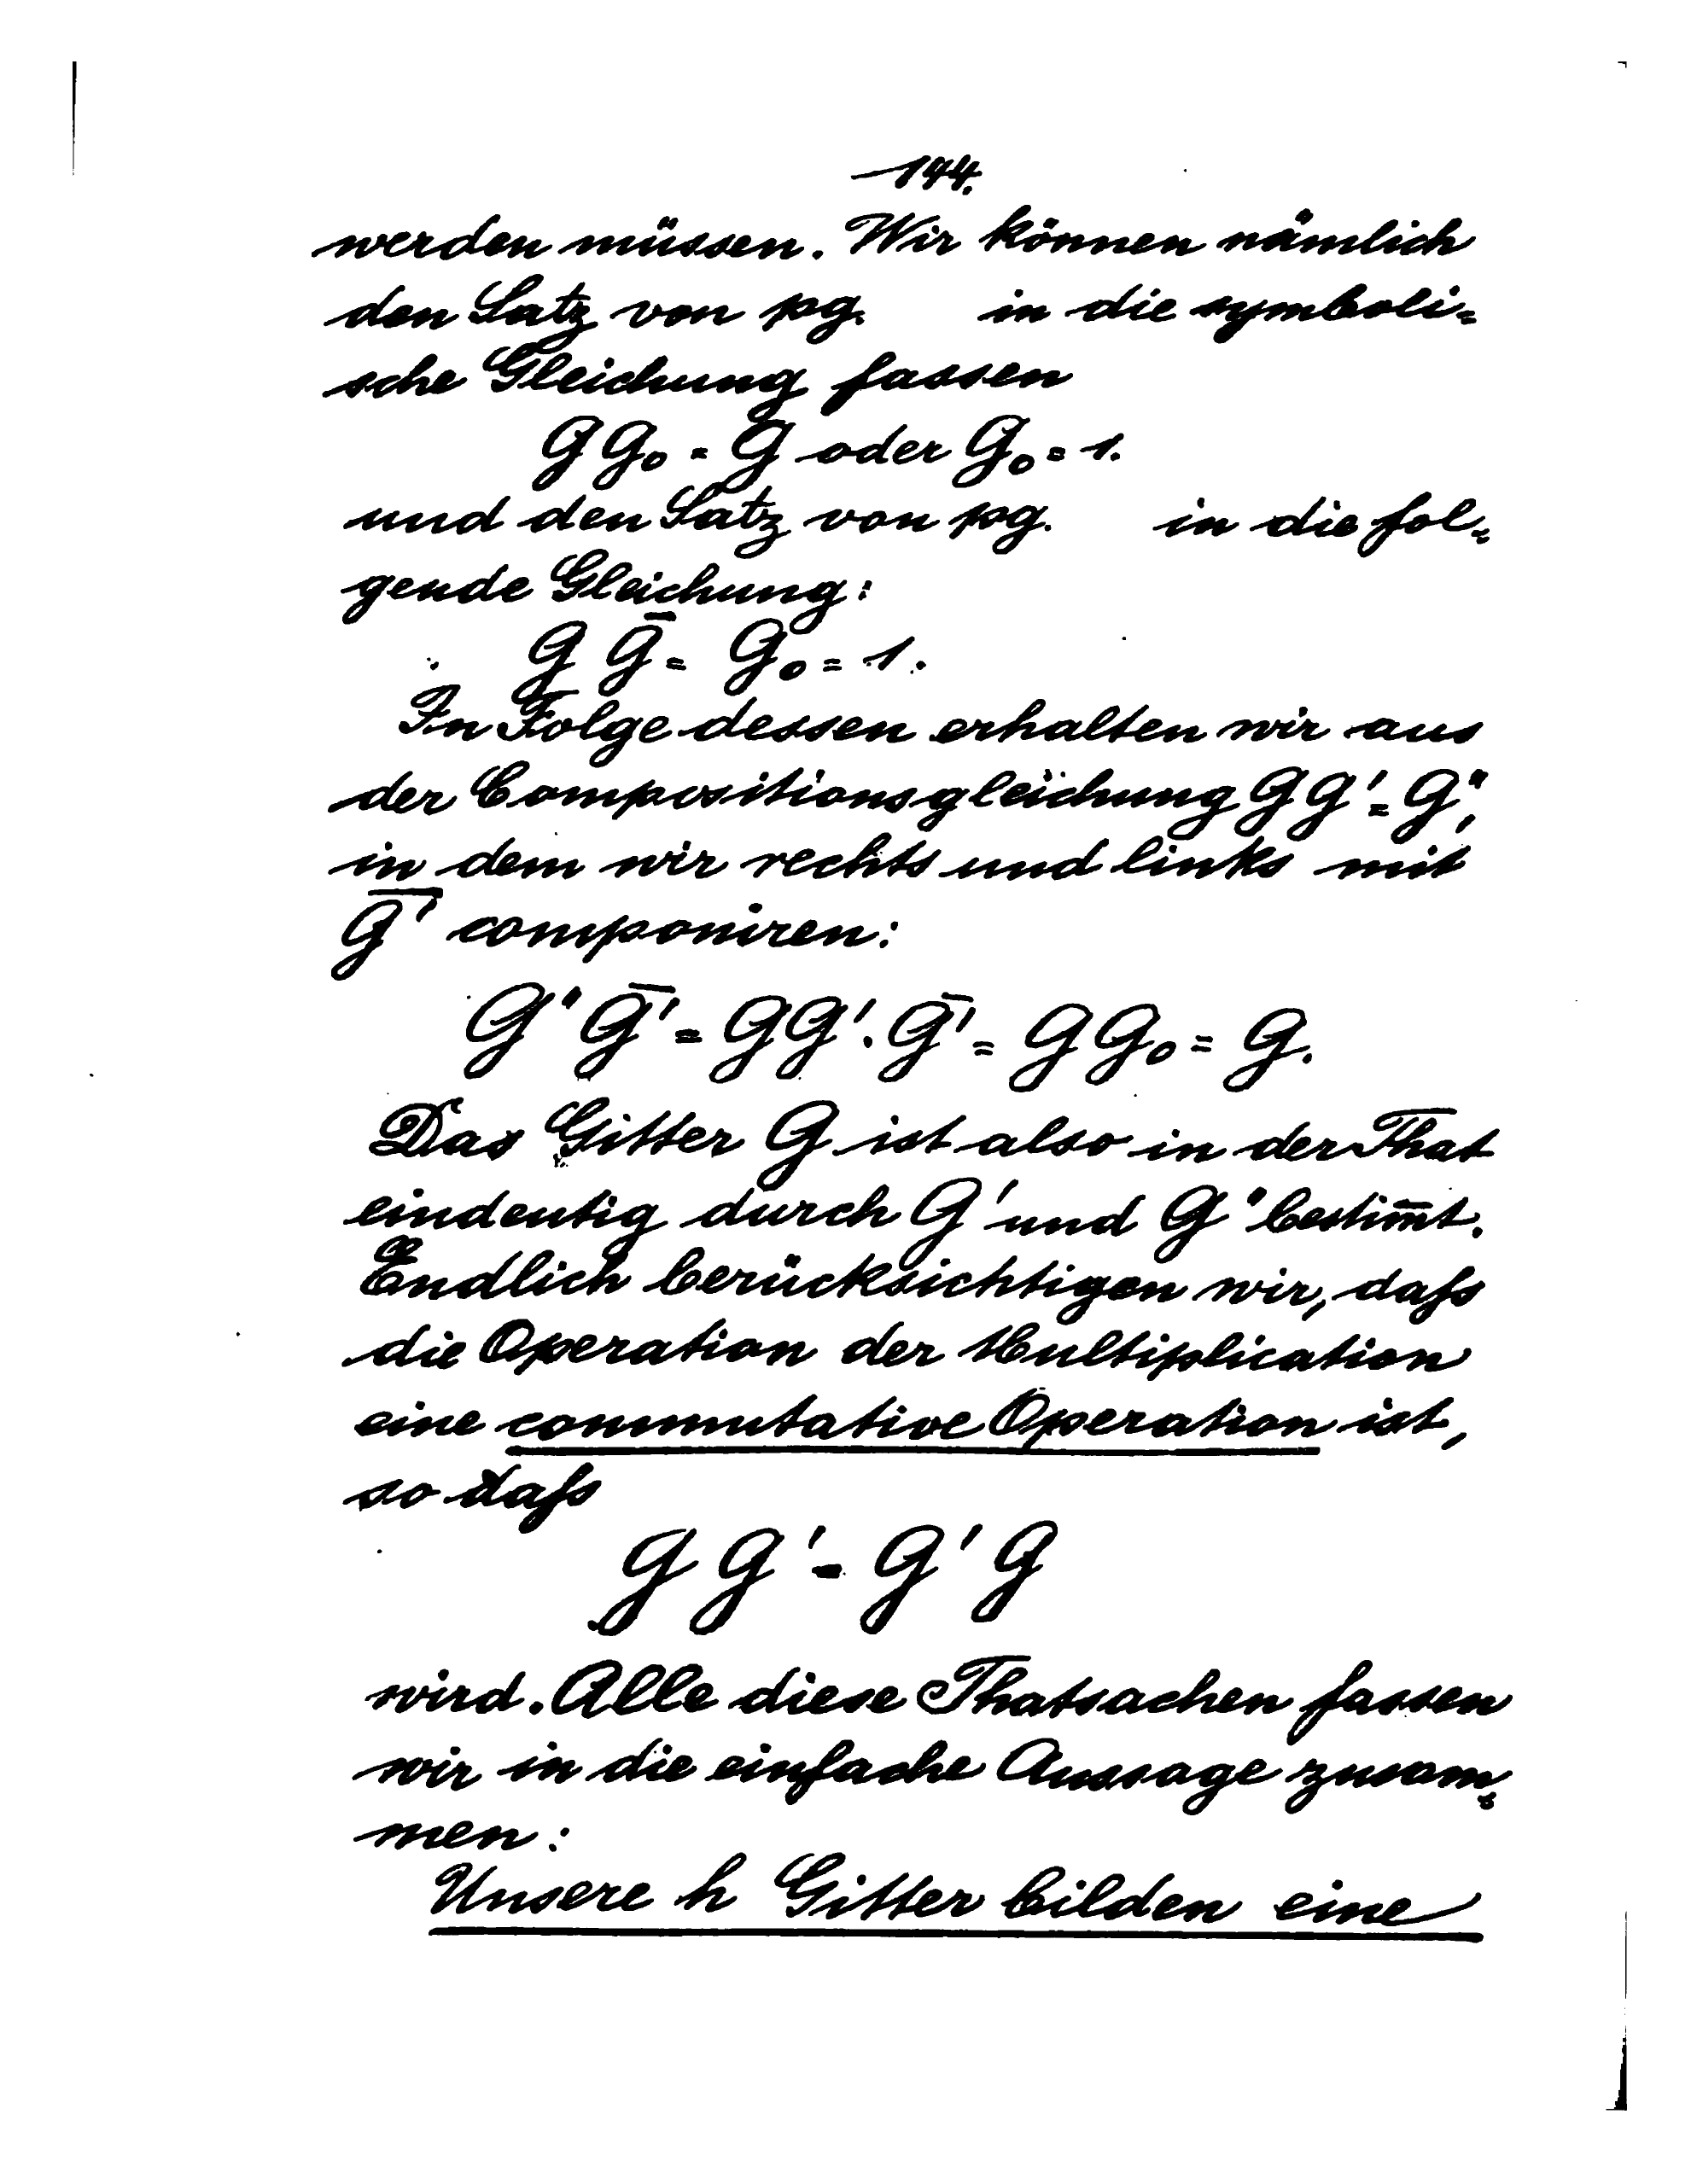 144.
werden müssen. Wir können nämlich
den Satz von pg. in die symboli=
sche Gleichung fassen
G G₀ = G oder G₀ = 1.
und den Satz von pg. in die fol=
gende Gleichung:
G G̅ = G₀ = 1.
In Folge dessen erhalten wir aus
der Compositionsgleichung G G' = G",
in dem wir rechts und links mit
G̅' componiren:
G" G̅' = G G' . G̅' = G G₀ = G.
Das Gitter G ist also in der That
eindeutig durch G' und G" bestim̅t.
Endlich berücksichtigen wir, daſs
die Operation der Multiplication
eine commutative Operation ist,
so daſs
G G' = G' G
wird. Alle diese Thatsachen fassen
wir in die einfache Aussage zusam=
men:
Unsere h Gitter bilden eine